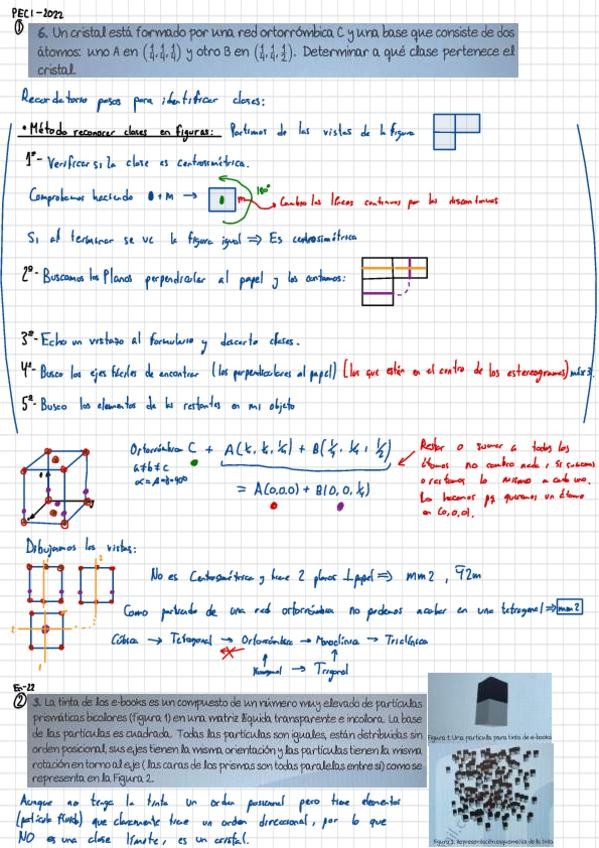 PEC1-2022
① 6. Un cristal está formado por una red ortorrómbica C y una base que consiste de dos
átomos: uno A en (1/4, 1/4, 1/4) y otro B en (1/4, 1/4, 1/2). Determinar a qué clase pertenece el
cristal.
Recordatorio pasos para identificar clases:
• Método reconocer clases en figuras: Partimos de las vistas de la figura
1º- Verificar si la clase es centrosimétrica.
Comprobamos haciendo + M → 180º
m → Cambio las líneas continuas por las discontinuas
Si al terminar se ve la figura igual ⇒ Es centrosimétrica
2º- Buscamos los Planos perpendicular al papel y los contamos:
3º- Echo un vistazo al formulario y descarto clases.
4º- Busco los ejes fáciles de encontrar (los perpendiculares al papel) (los que están en el centro de los estereogramas) máx 3.
5º- Busco los elementos de los restantes en mi objeto
Ortorrómbica C + A(1/4, 1/4, 1/4) + B(1/4, 1/4, 1/2)
a≠b≠c
= A(0,0,0) + B(0,0,1/4)
Restar o sumar a todos los
átomos no cambia nada, si sumamos
o restamos lo mismo a cada uno.
Lo hacemos pq queremos un átomo
en (0,0,0).
Dibujamos las vistas:
No es Centrosimétrica y tiene 2 planos ⊥ papel ⇒ mm2, 4̅2m
Como partiendo de una red ortorrómbica no podemos acabar en una tetragonal ⇒ mm2
Cúbica → Tetragonal → Ortorrómbica → Monoclínica → Triclínica
Hexagonal → Trigonal
En-22
② 3. La tinta de los e-books es un compuesto de un número muy elevado de partículas
prismáticas bicolores (figura 1) en una matriz líquida transparente e incolora. La base
de las partículas es cuadrada. Todas las partículas son iguales, están distribuidas sin
orden posicional, sus ejes tienen la misma orientación y las partículas tienen la misma
rotación en torno al eje (las caras de los prismas son todas paralelas entre sí) como se
representa en la Figura 2.
Figura 1: Una partícula para tinta de e-books
Aunque no tenga la tinta un orden posicional pero tiene elementos
(partícula fluido) que claramente tiene un orden direccional, por lo que
NO es una clase límite, es un cristal.